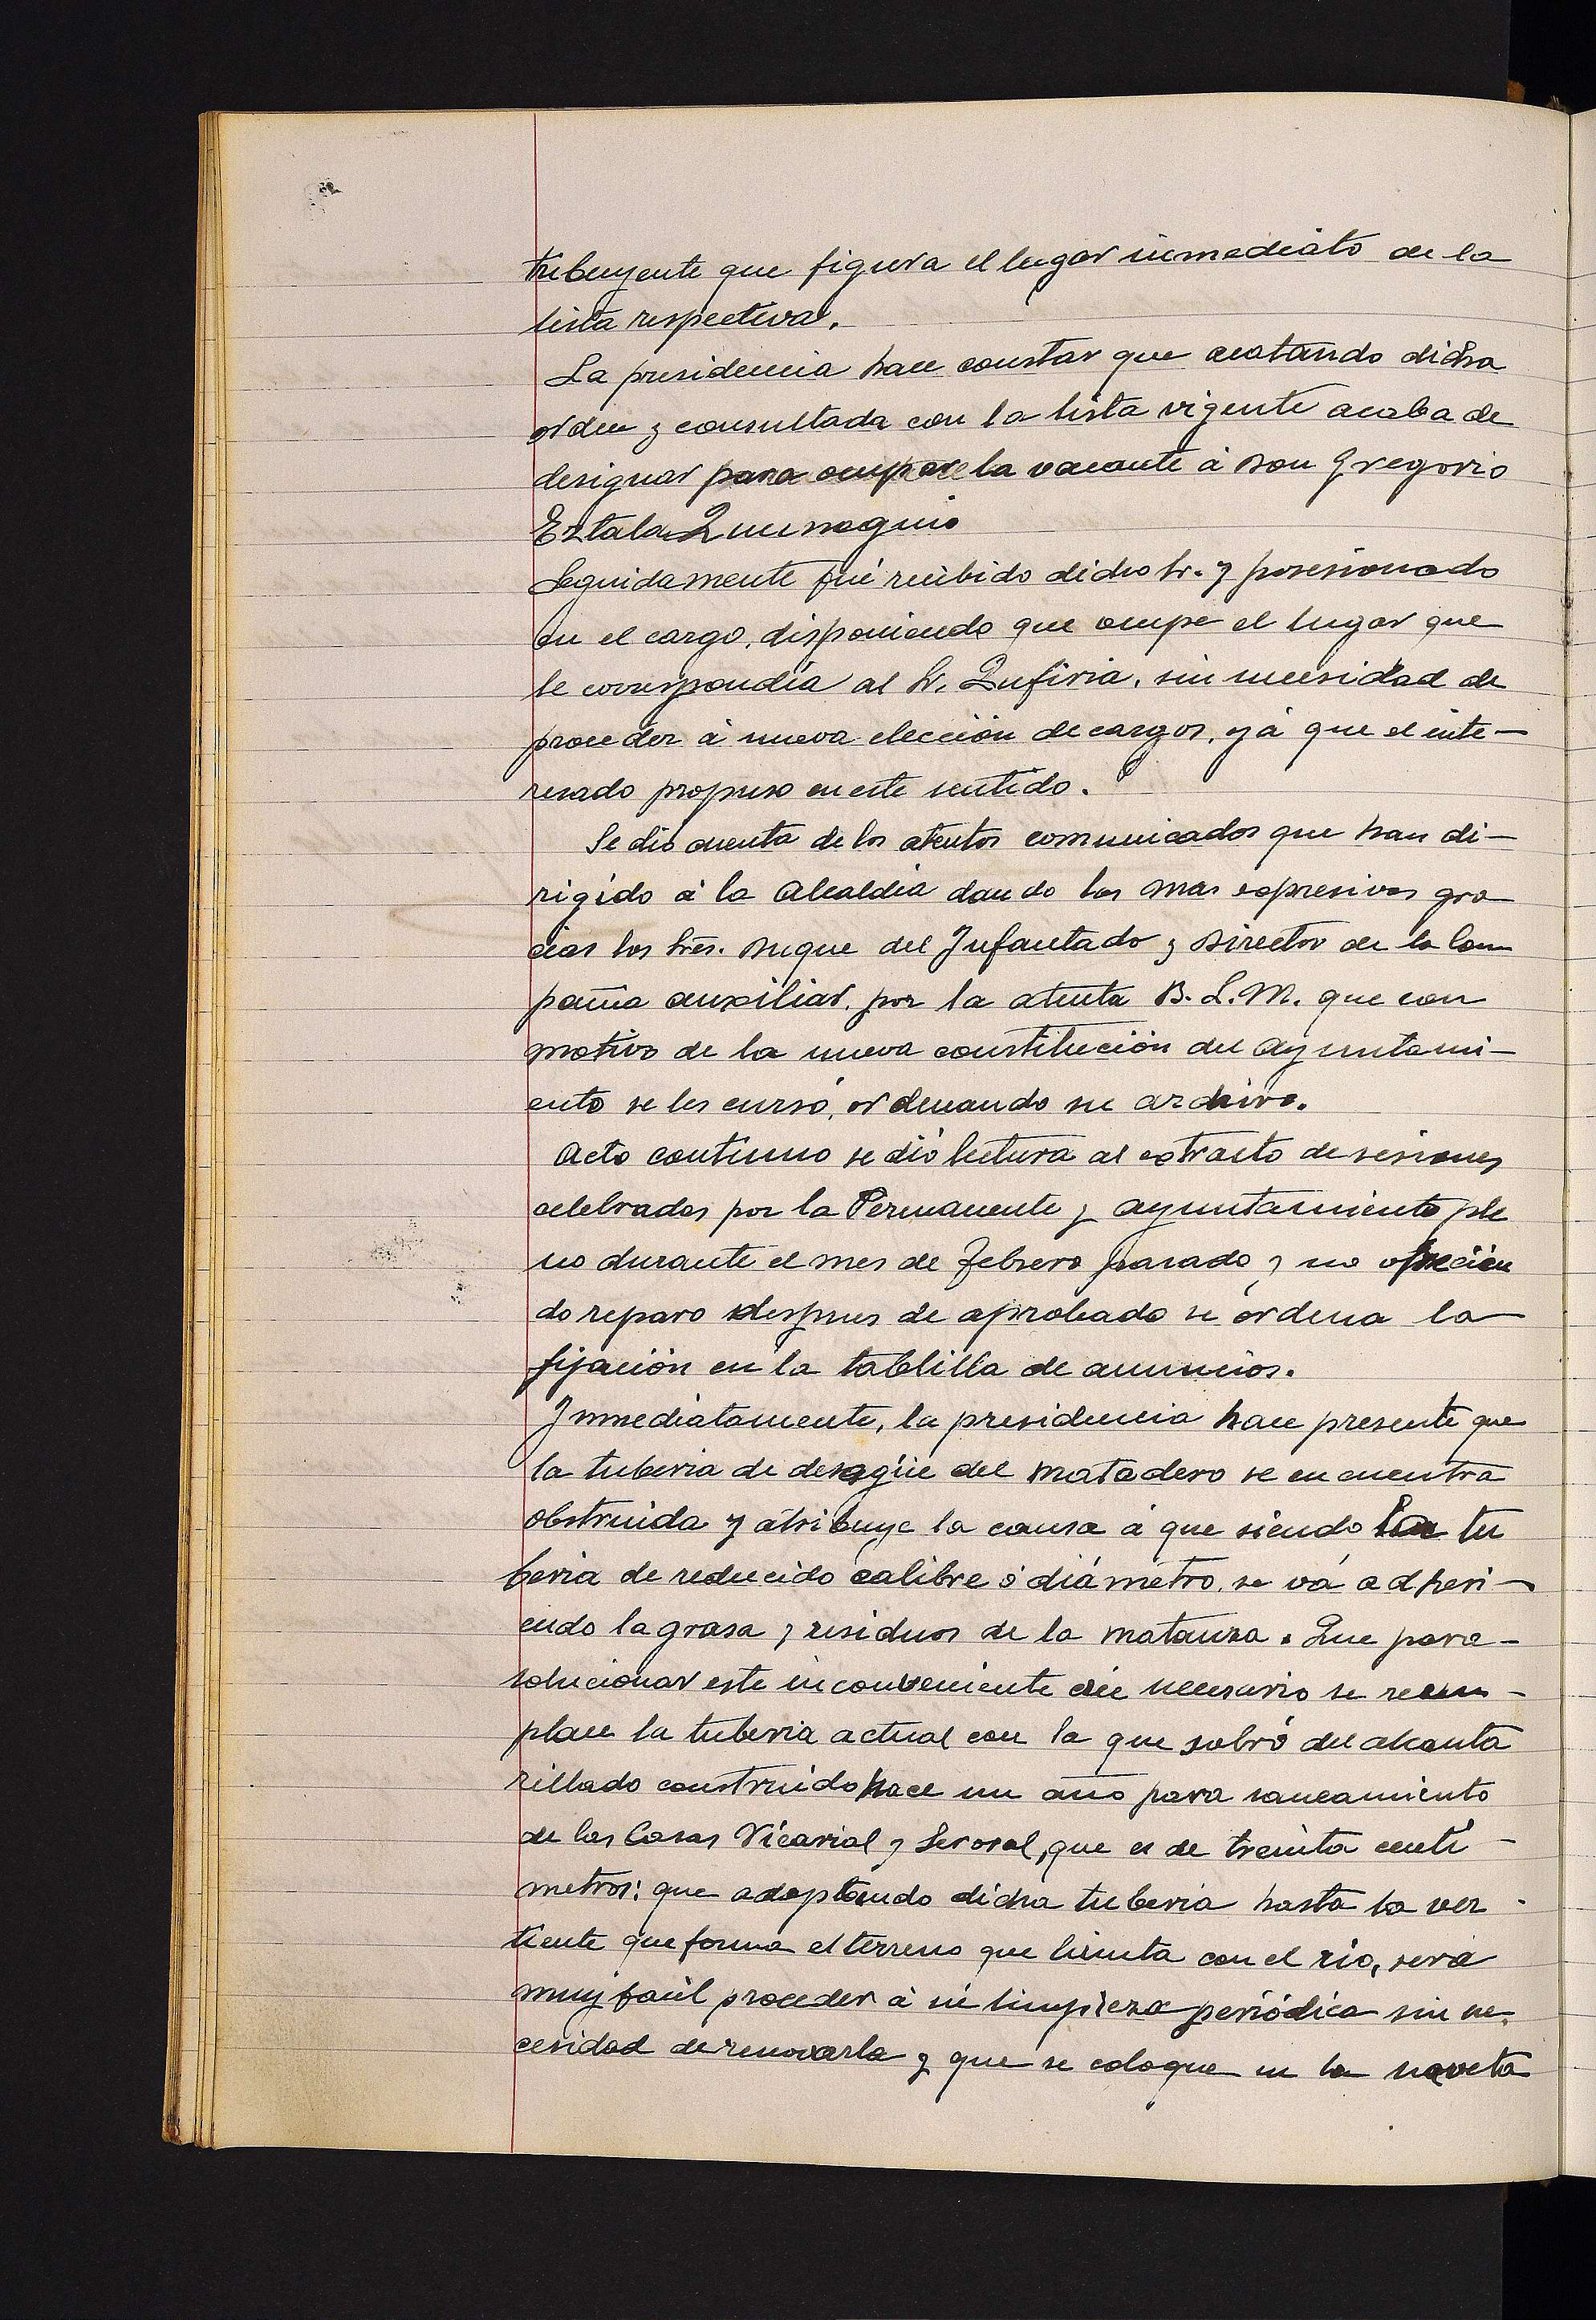 tribuyente que figura el lugar inmediato de la
lista respectiva.
La presidencia hace constar que acatando dicha
orden y consultada con la lista vigente acaba de
designar para ocupar la vacante á Don Gregorio
Eztala
Seguidamente fué recibido dicho Sr. y posesionado
en el cargo, disponiendo que ocupe el lugar que
le correspondía al Sr. Zufiria, sin necesidad de
proceder á nueva elección de cargos, yá que el inte-
resado propuso en este sentido.
Se dió cuenta de los atentos comunicados que han di-
rigido á la Alcaldia dando las mas expresivas gra
cias los Srēs. Duque del Infantado y Director de la Com
pañia auxiliar, por la atenta B. L. M. que con
motivo de la nueva constitución del Ayuntami-
ento se les cursó, ordenando su archivo.
Acto continuo se dió lectura al extracto de sesiones
celebradas por la Permanente y ayuntamiento ple
no durante el mes de Febrero pasado y no ofrecien
do reparo despues de aprobado se ordena la
fijación en la tablilla de anuncios.
Inmediatamente, la presidencia hace presente que
la tuberia de desagüe del matadero se encuentra
obstruida y atribuye la causa á que siendo la tu
beria de reducido calibre ó diámetro, se vá adheri-
endo la grasa y residuos de la matanza. Que para-
solucionar este inconveniente crée necesario se reem-
place la tuberia actual con la que sobró del alcanta
rillado construido hace un año para saneamiento
de las Casas Vicarial y Seroral, que es de treinta centi-
metros: que adoptando dicha tuberia hasta la ver-
tiente que forma el terreno que limita con el rio, será
muy facil proceder á su limpieza periódica sin ne-
cesidad de renovarla y que se coloque en la